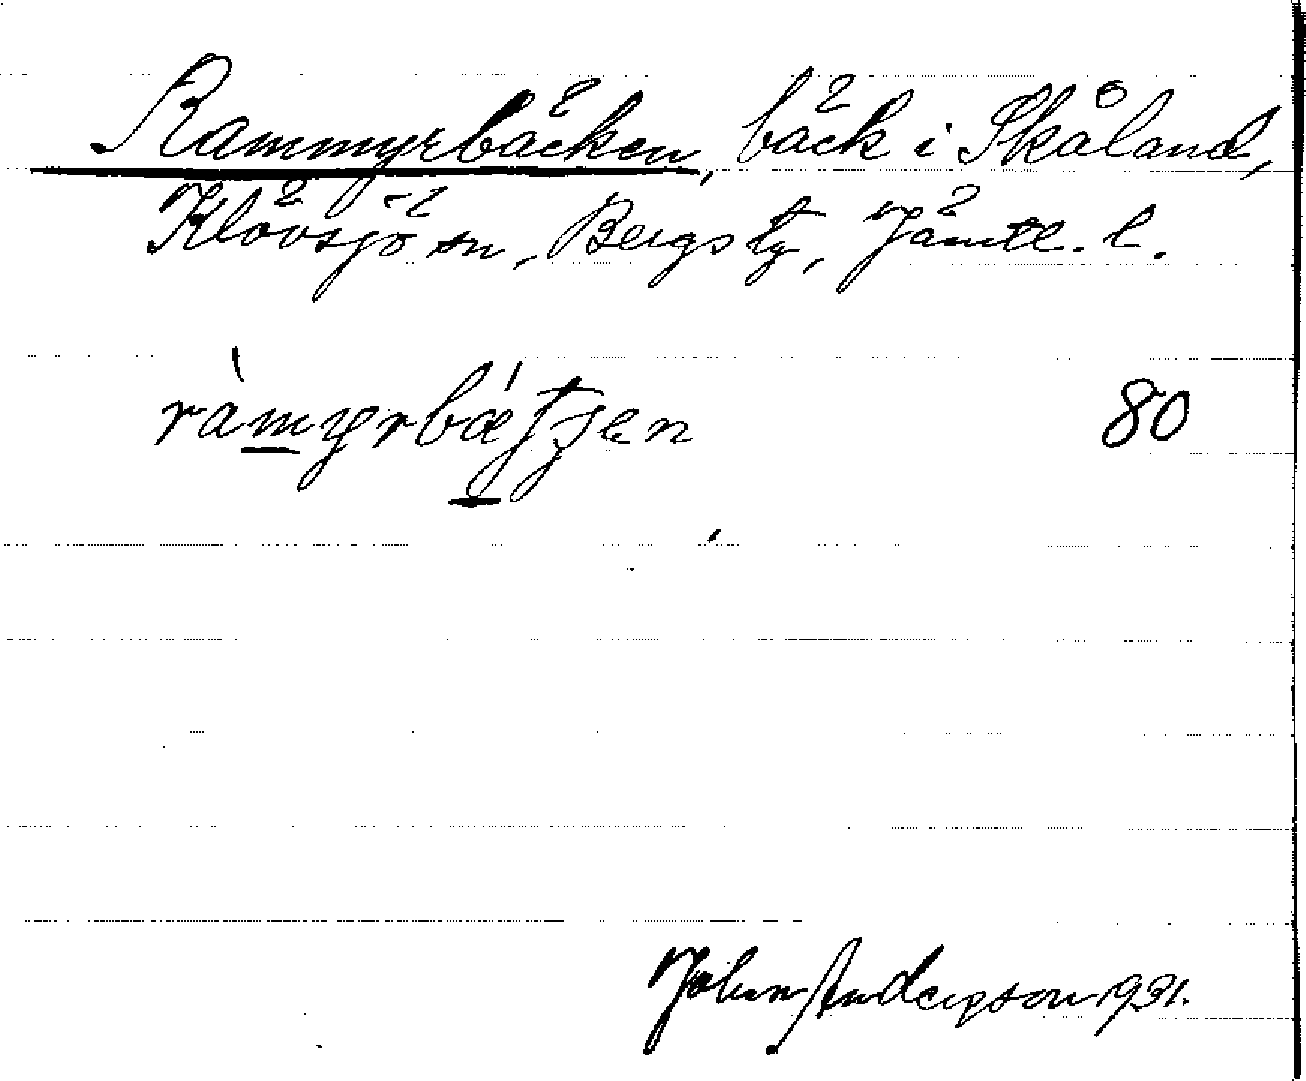 Rammyrbäcken, bäck i Skåland,
Klövsjö sn, Bergs tg, Jämtl. l.
80
John Anderson 1931.